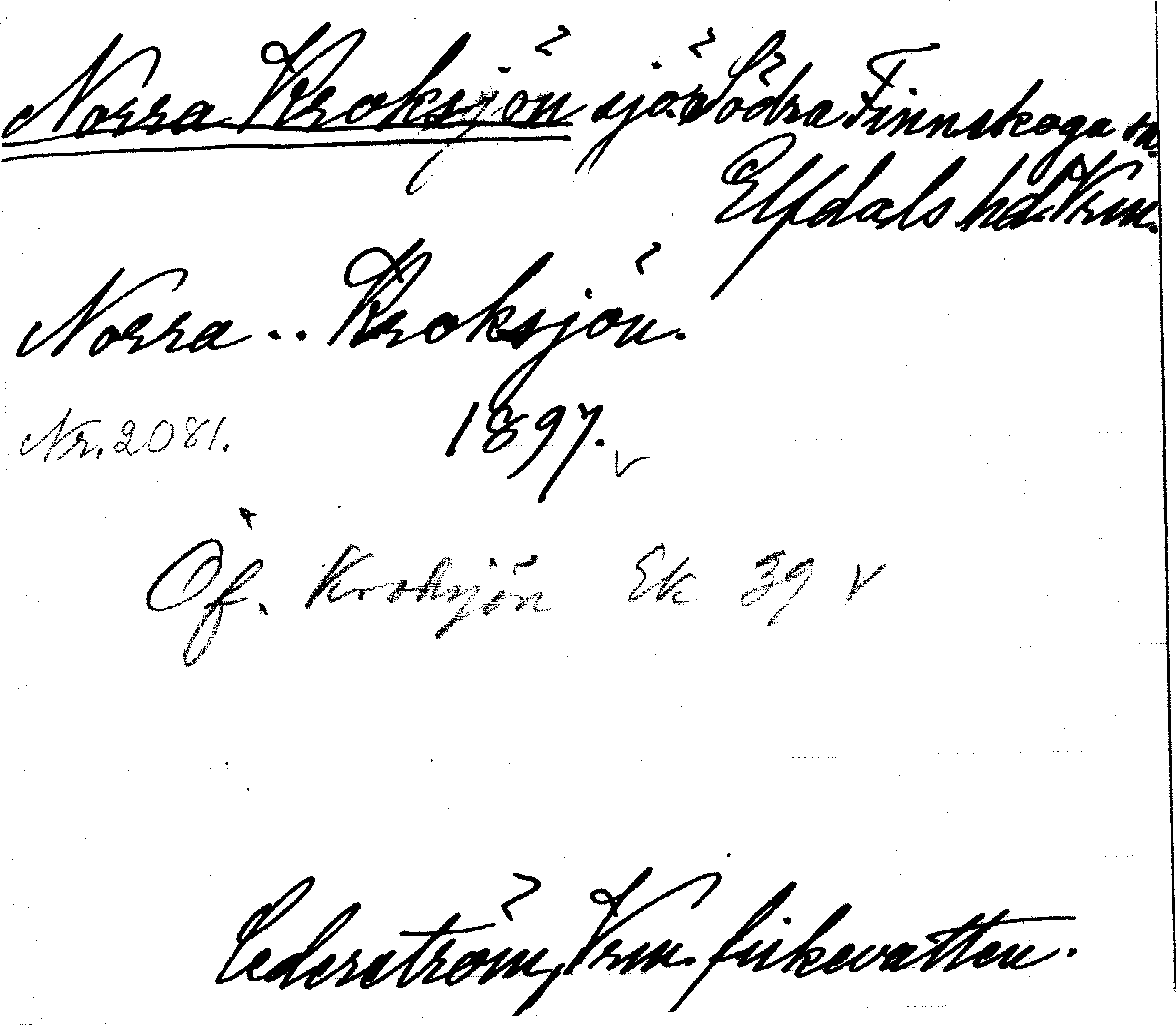 Norra Kroksjön sjö i Södra Finnskoga sn
Elfdals hd. Vrm.
Norra .. Kroksjön.
Nr. 2081. 1897. v
Öf. Kroksjön Ek 39 v
Cederström, Vrm. fiskevatten.